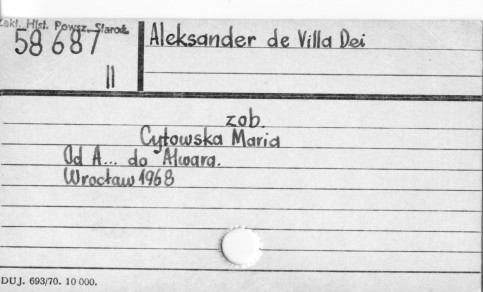 Zakł. Hist. Powsz. Staroż.
58687
II
Aleksander de Villa Dei
zob.
Cytowska Maria
Od A... do Alwara.
Wrocław 1968
DUJ. 693/70. 10 000.